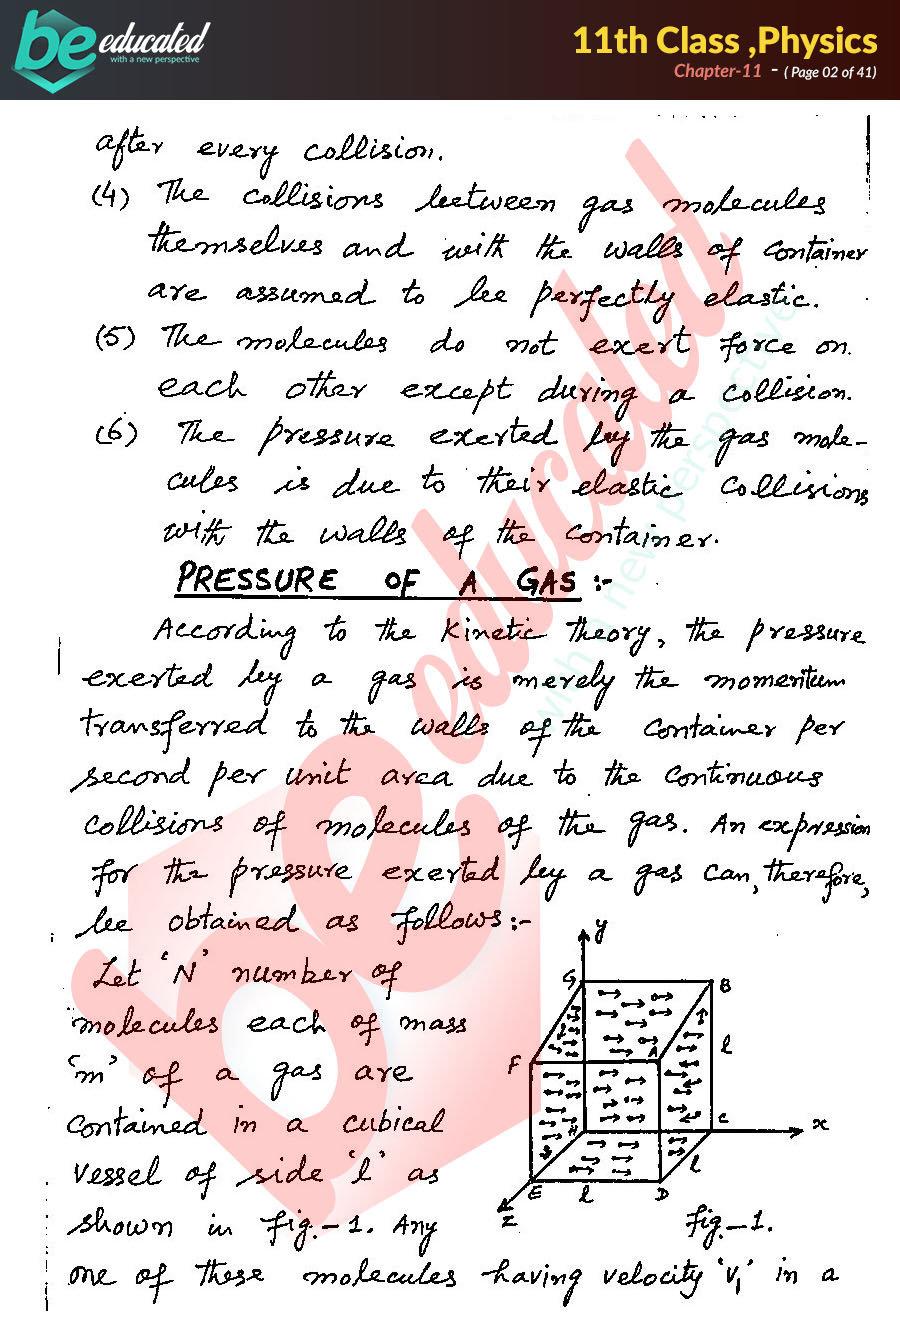 be educated
with a new perspective
11th Class ,Physics
Chapter-11 - ( Page 02 of 41)
after every collision.
(4) The collisions between gas molecules
themselves and with the walls of container
are assumed to be perfectly elastic.
(5) The molecules do not exert force on
each other except during a collision.
(6) The pressure exerted by the gas mole-
cules is due to their elastic collisions
with the walls of the container.
PRESSURE OF A GAS :-
According to the Kinetic theory, the pressure
exerted by a gas is merely the momentum
transferred to the walls of the container per
second per unit area due to the continuous
collisions of molecules of the gas. An expression
for the pressure exerted by a gas can, therefore,
be obtained as follows:-
Let 'N' number of
molecules each of mass
'm' of a gas are
contained in a cubical
vessel of side 'l' as
shown in fig.-1. Any
one of these molecules having velocity 'v₁' in a
y
G
B
F
A
l
H
C
x
l
E
l
D
z
fig.-1.
be educated
with a new perspective